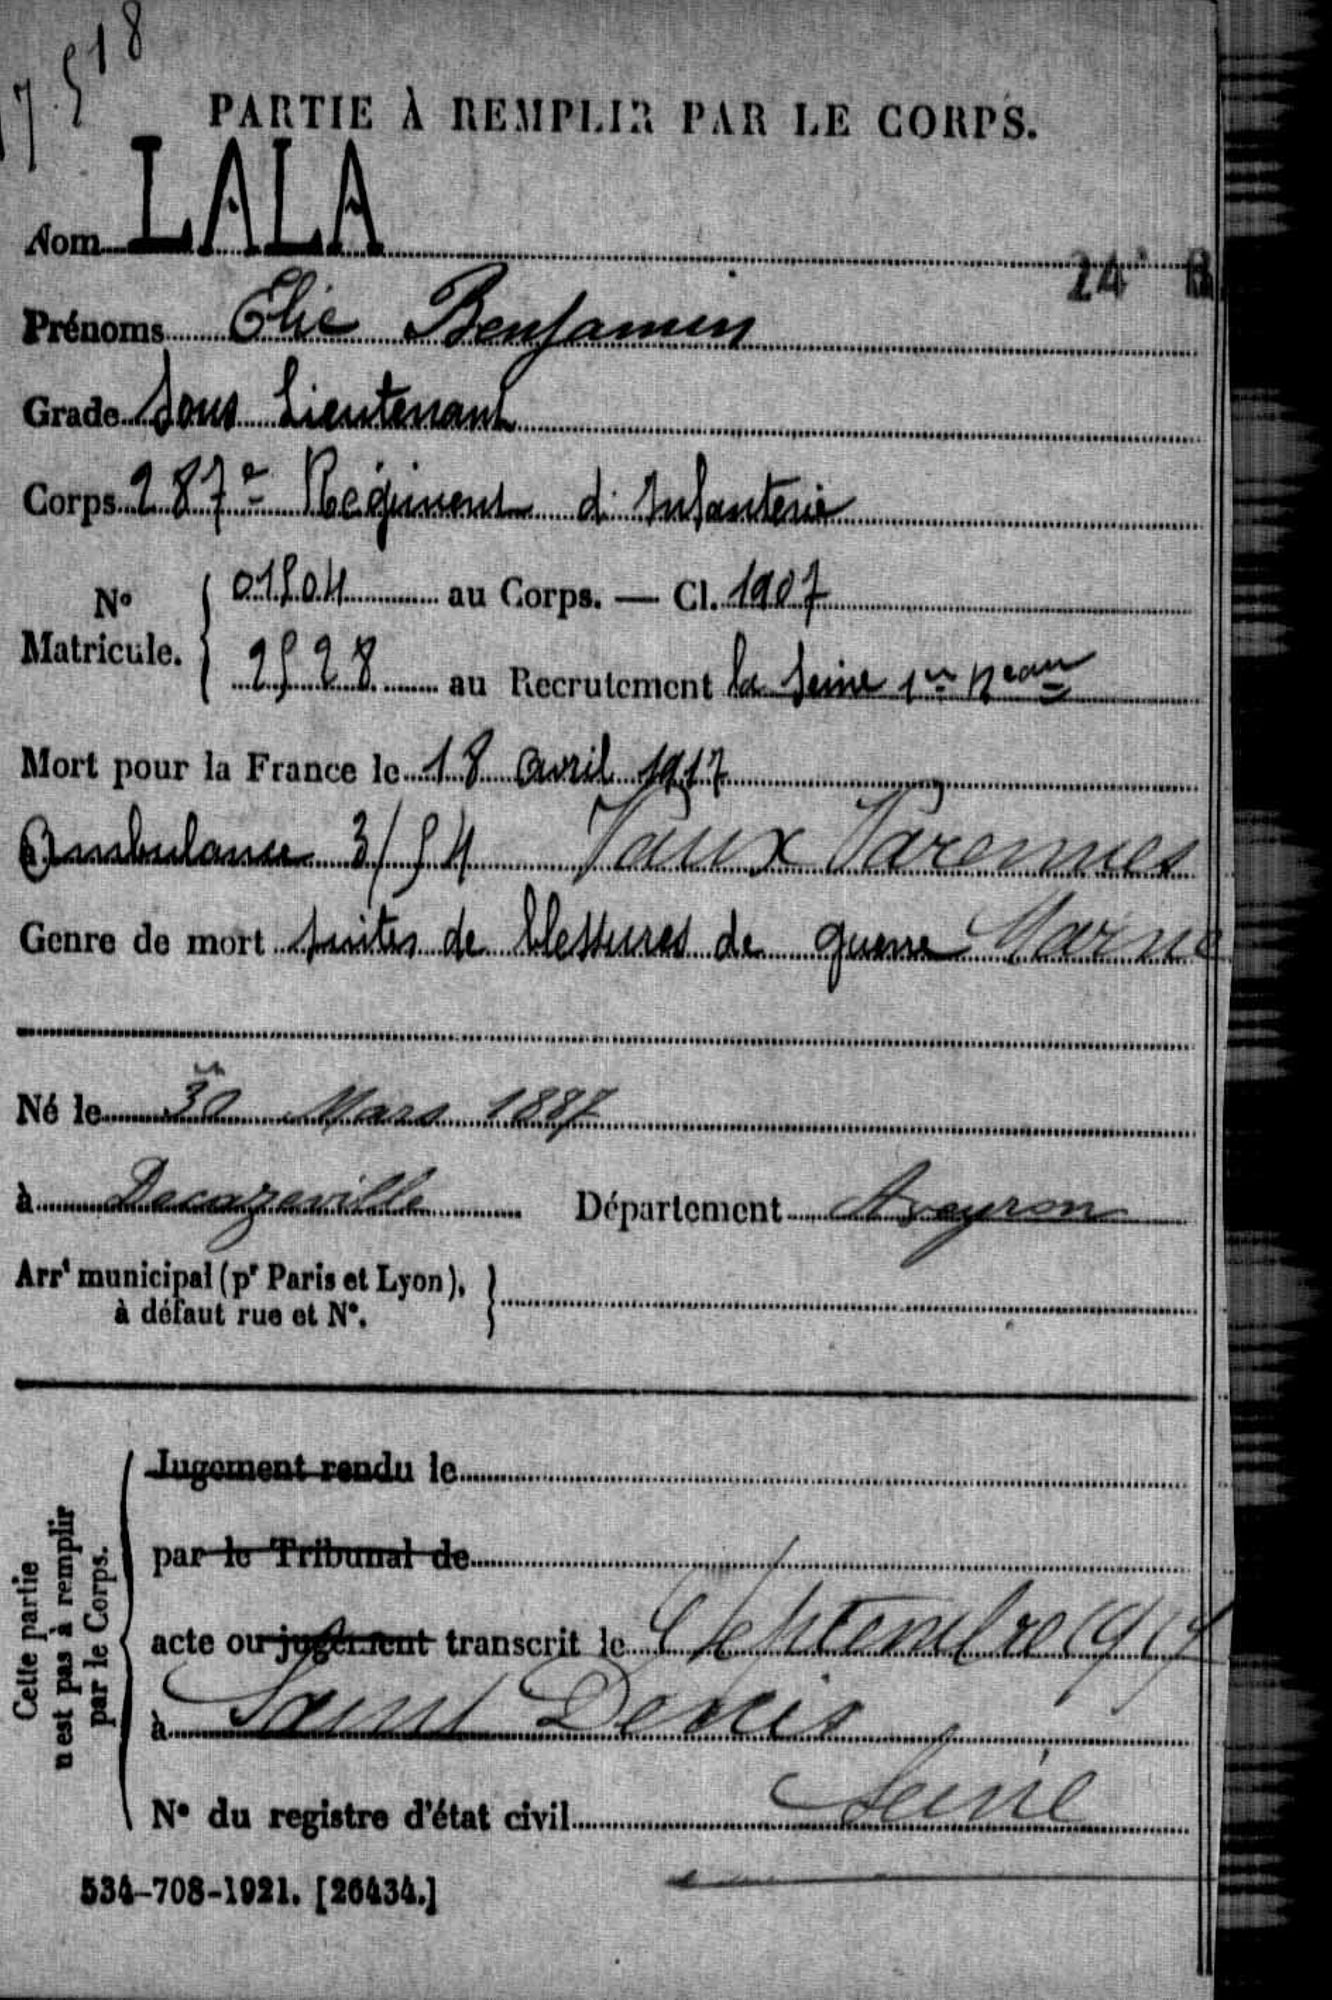 17.518
PARTIE À REMPLIR PAR LE CORPS.
Nom LALA
24 B
Prénoms Elie Benjamin
Grade Sous Lieutenant
Corps 287e Régiment d'Infanterie
N° Matricule. 01504 au Corps. — Cl. 1907
2528 au Recrutement la Seine 1er Beau
Mort pour la France le 18 avril 1917
Ambulance 3/54 Vaux Varennes
Genre de mort suites de blessures de guerre Marne
Né le 30 Mars 1887
à Decazeville Département Aveyron
Arrt municipal (pr Paris et Lyon),
à défaut rue et N°.
Cette partie
n'est pas à remplir
par le Corps.
Jugement rendu le
par le Tribunal de
acte ou jugement transcrit le Septembre 1917
à Saint Denis
Seine
N° du registre d'état civil
534-708-1921. [26434.]